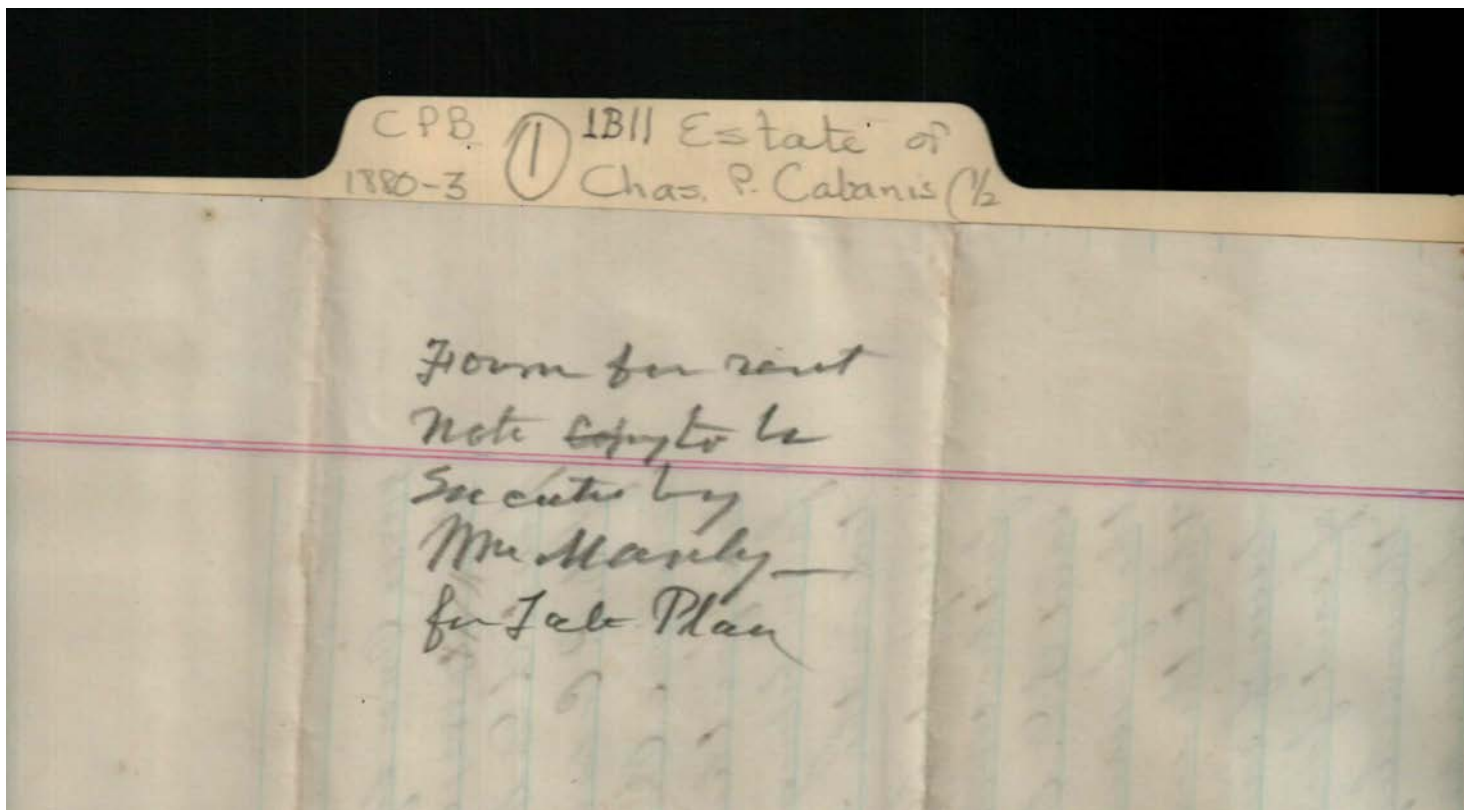 CPB ① 1B11 Estate of
1880-3 Chas. P. Cabanis (1/2
Form for rent
note copy to be
Executed by
Mr Manly —
for Tate Plan